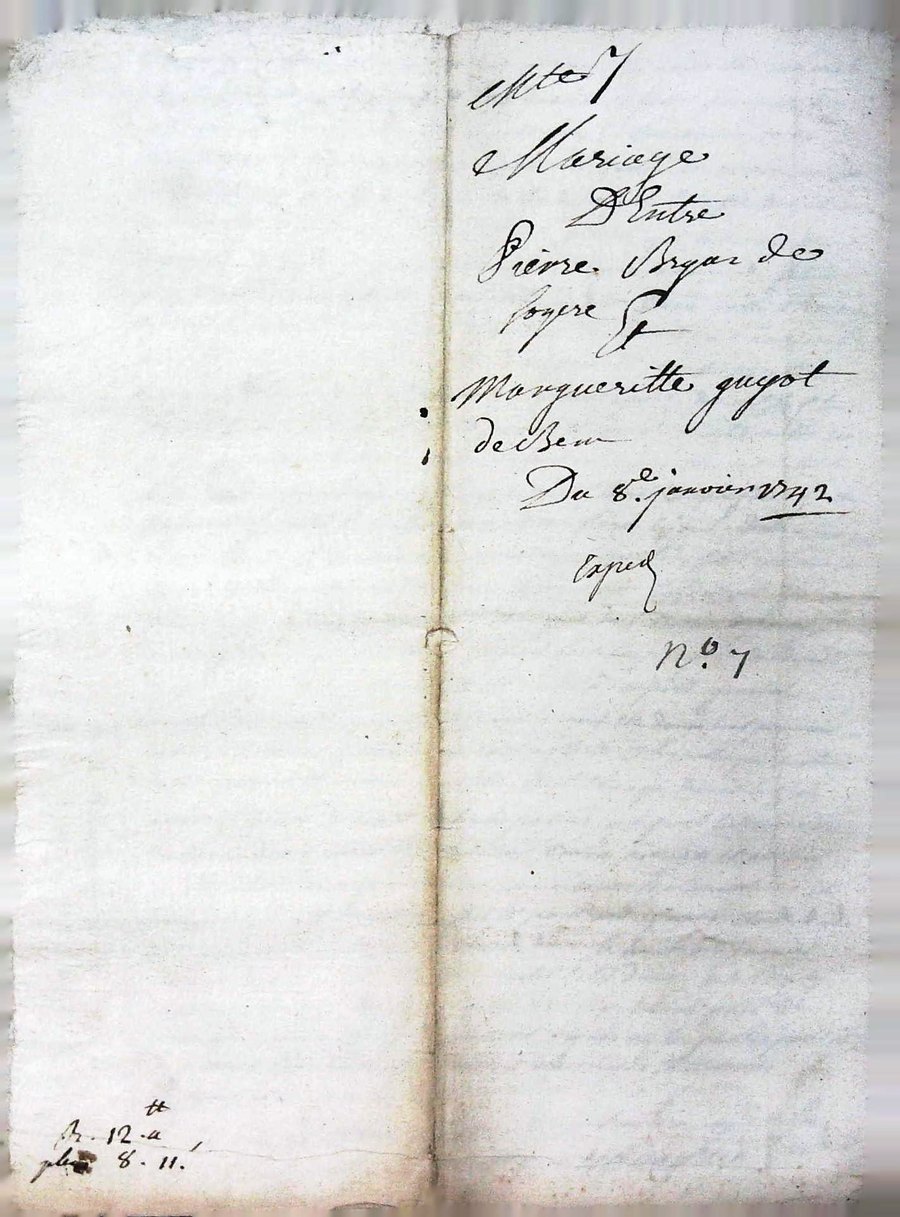 Mariage
D'Entre
Pierre Bryar de
foyere Et
Margueritte guyot
de Bem
Du 8e. janvier 1742
Exped
No. 7
R. 12. a tt
plus 8. 11.